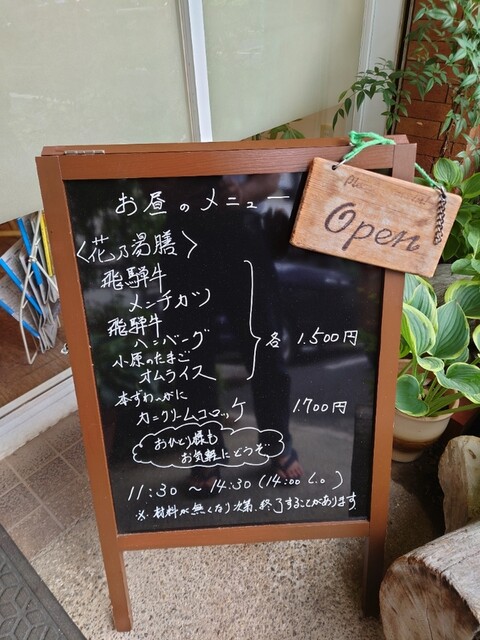 お昼のメニュー
Open
〈花乃湯膳〉
飛騨牛
メンチカツ
飛騨牛
ハンバーグ
小原のたまご
オムライス
各 1.500円
本ずわいがに
カニクリームコロッケ 1.700円
おひとり様も
お気軽にどうぞ
11:30 ~ 14:30 (14:00 L.o.)
※.材料が無くなり次第、終了することがあります